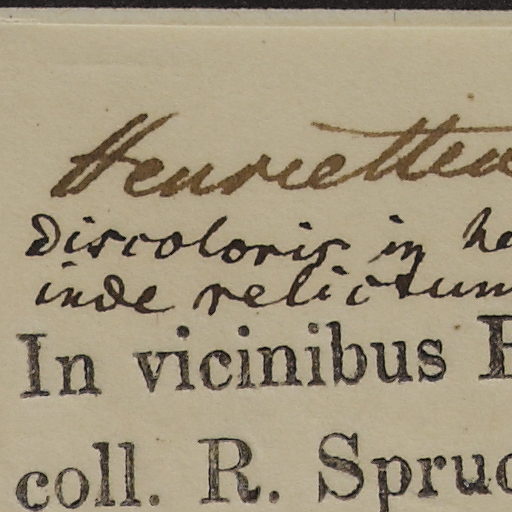 Henrietten
Discoloris in he
inde relictum
In vicinibus B
coll. R. Spruc